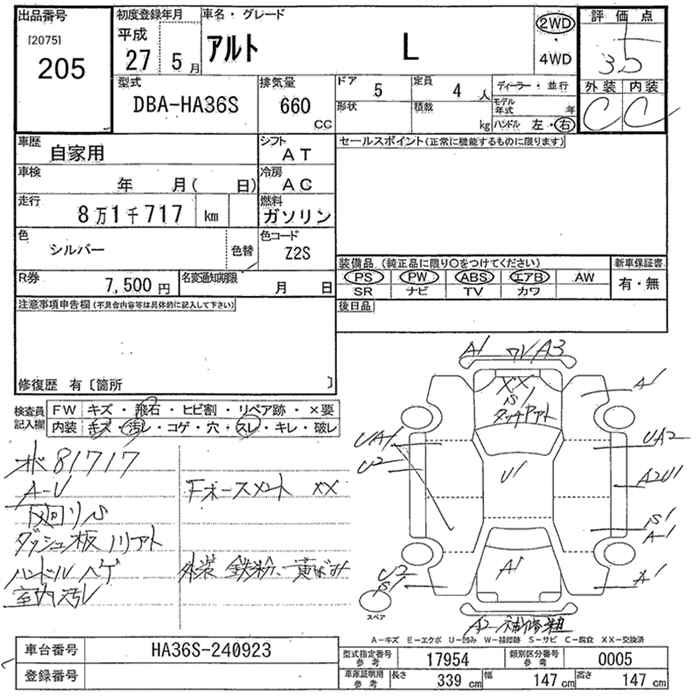 出品番号
[2075]
205
初度登録年月
平成
27 5月
車名・グレード
アルト L
2WD
・
4WD
評価点
3.0
外装 内装
C C
型式
DBA-HA36S
排気量
660
CC
ドア
5
定員
4 人
形状
積載
kg
ディーラー・並行
モデル年式 年
ハンドル 左・右
車歴
自家用
シフト
AT
車検
年 月( 日)
冷房
AC
走行
8万1千717 km
燃料
ガソリン
色
シルバー
色替
色コード
Z2S
R券
7,500円
名変通知期限
月 日
セールスポイント(正常に機能するものに限ります)
装備品(純正品に限り〇をつけてください)
新車保証書
PS PW ABS エアB AW
有・無
SR ナビ TV カワ
後日品
注意事項申告欄(不具合内容等は具体的に記入して下さい)
修復歴 有〔箇所 〕
検査員
記入欄
FW キズ・飛石・ヒビ割・リペア跡・×要
内装 キズ・汚レ・コゲ・穴・スレ・キレ・破レ
81717
A-U
下廻りS
ダッシュ板
ハンドルハゲ
室内汚レ
XX
外装 鉄粉、
A1
A3
XX
S1
A1
UA1
U2
U1
UA2
A2U1
S1
A-1
U2
S1
A1
A1
A2
スペア
A-キズ E-エクボ U-凹み W-補修跡 S-サビ C-腐食 XX-交換済
車台番号
HA36S-240923
登録番号
型式指定番号
参考
17954
類別区分番号
参考
0005
車庫証明用
参考
長さ
339 cm
幅
147 cm
高さ
147 cm